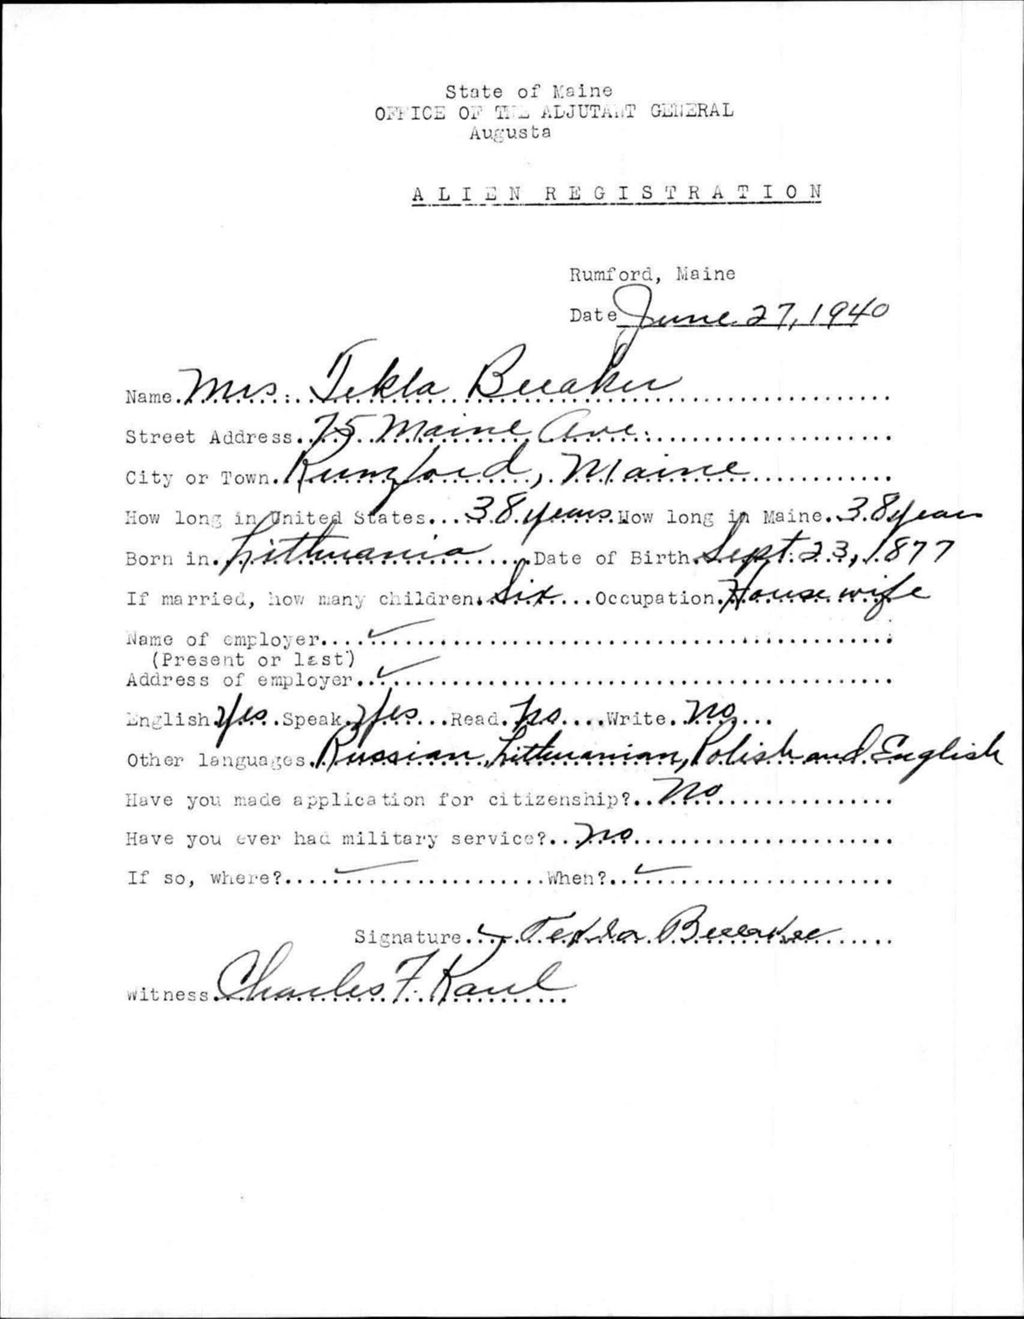 State of Maine
OFFICE OF THE ADJUTANT GENERAL
Augusta
ALIEN REGISTRATION
Rumford, Maine
Date June 27, 1940
Name Mrs. Tekla
Street Address 75 Maine Ave.
City or Town Rumford, Maine
How long in United States 38 years How long in Maine 38 years
Born in Lithuania Date of Birth Sept. 23, 1877
If married, how many children Six Occupation House wife
Name of employer
(Present or last)
Address of employer
English Yes Speak Yes Read No Write No
Other languages Russian, Lithuanian, Polish and English
Have you made application for citizenship? No
Have you ever had military service? No
If so, where? When?
Signature Tekla
Witness Charles F. Kaul